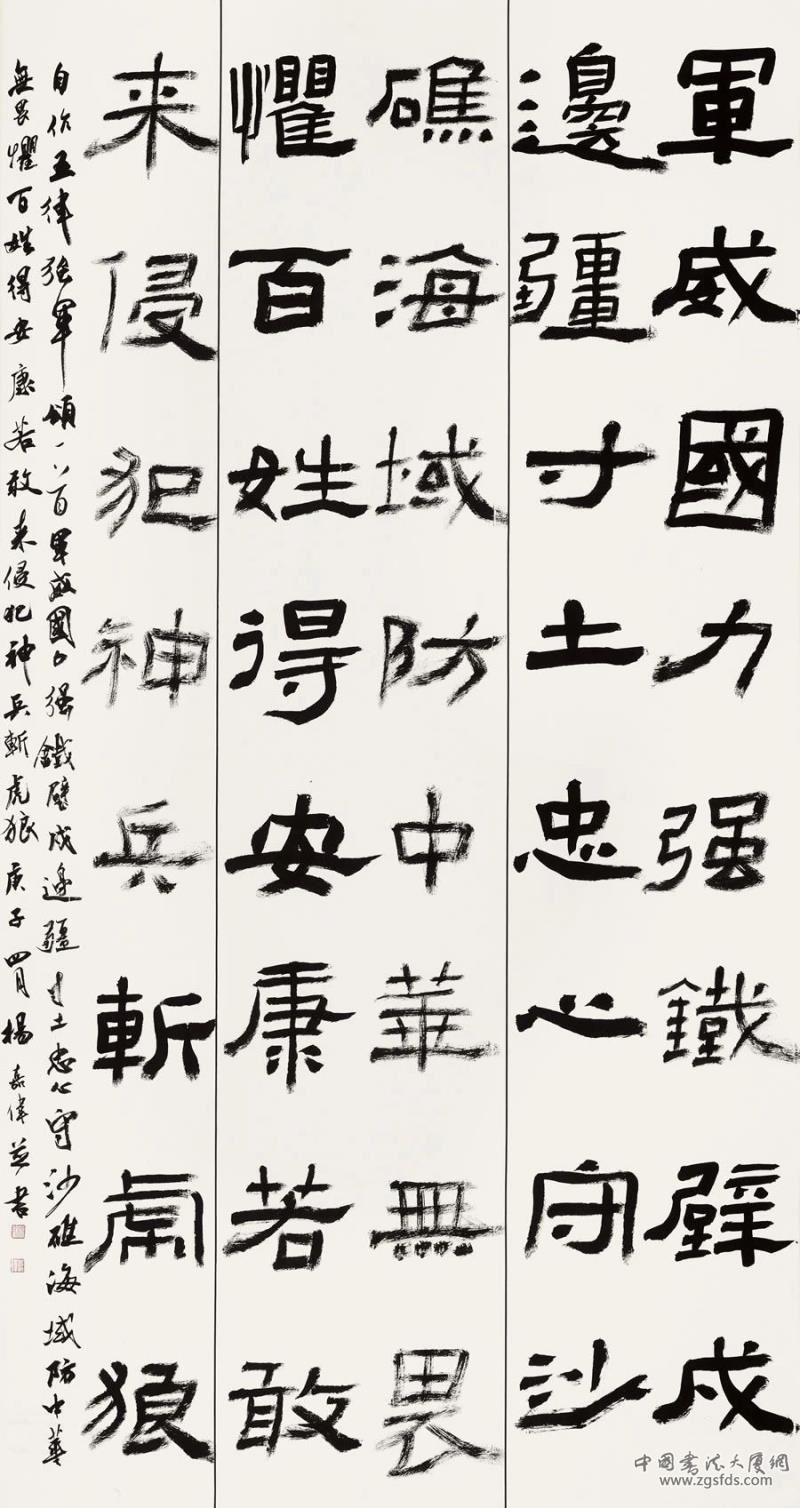 軍威國力强鐵壁戍
邊疆寸土忠心守沙
礁海域防中華無畏
懼百姓得安康若敢
来侵犯神兵斬虎狼
自作五律强軍頌一首軍威國力强鐵壁戍邊疆寸土忠心守沙礁海域防中華
無畏懼百姓得安康若敢来侵犯神兵斬虎狼庚子四月楊嘉偉並書
中國書法大厦網
www.zgsfds.com